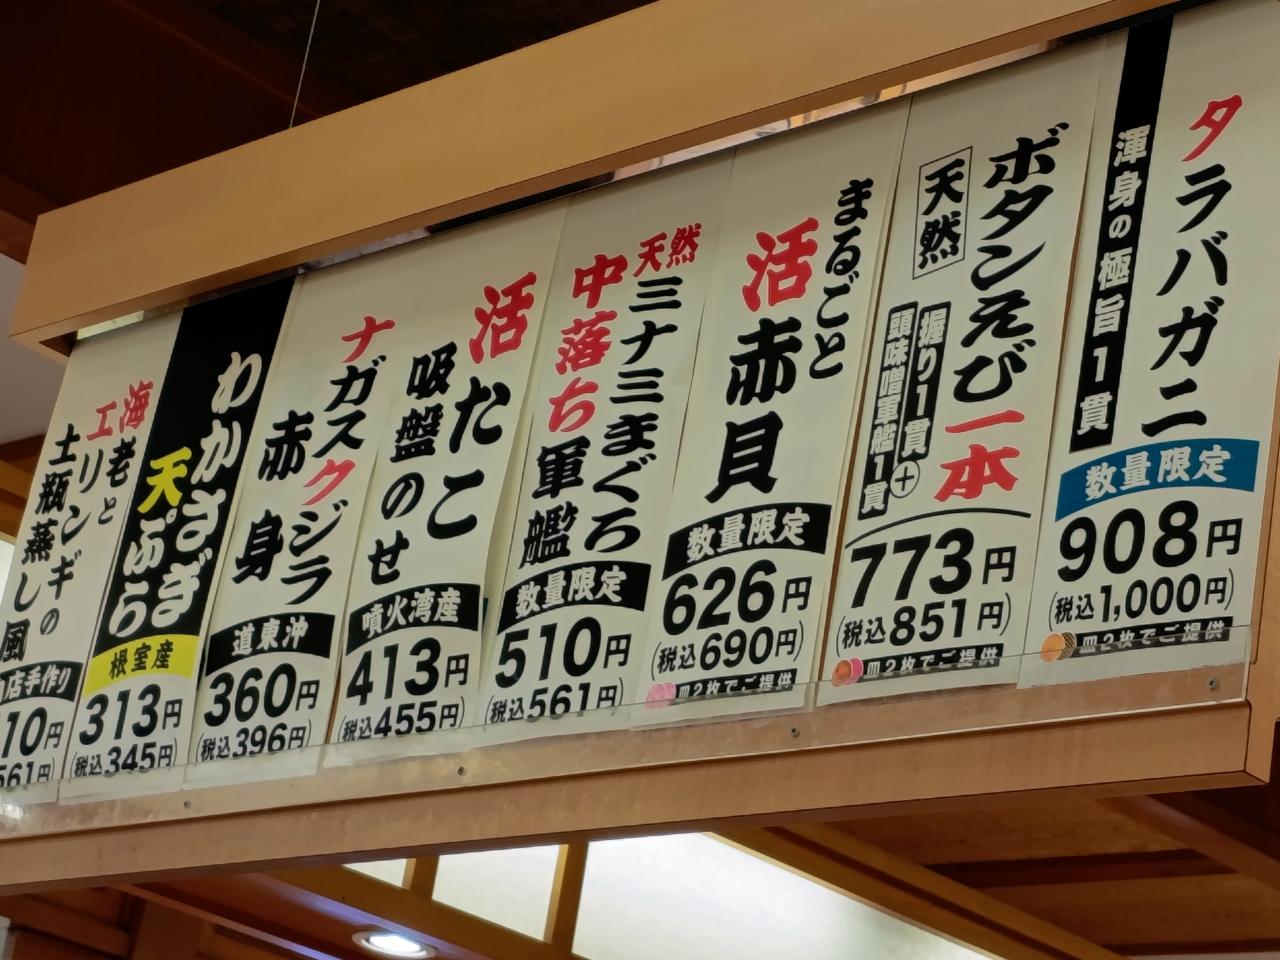 タラバガニ
渾身の極旨1貫
数量限定
908円
(税込1,000円)
皿2枚でご提供
ボタンえび一本
天然
握り1貫+
頭味噌軍艦1貫
773円
(税込851円)
皿2枚でご提供
まるごと
活赤貝
数量限定
626円
(税込690円)
皿2枚でご提供
天然三ナ三まぐろ
中落ち軍艦
数量限定
510円
(税込561円)
活たこ
吸盤のせ
噴火湾産
413円
(税込455円)
ナガスクジラ
赤身
道東沖
360円
(税込396円)
わかさぎ
天ぷら
根室産
313円
(税込345円)
海老と
エリンギの
土瓶蒸し風
店手作り
10円
561円)